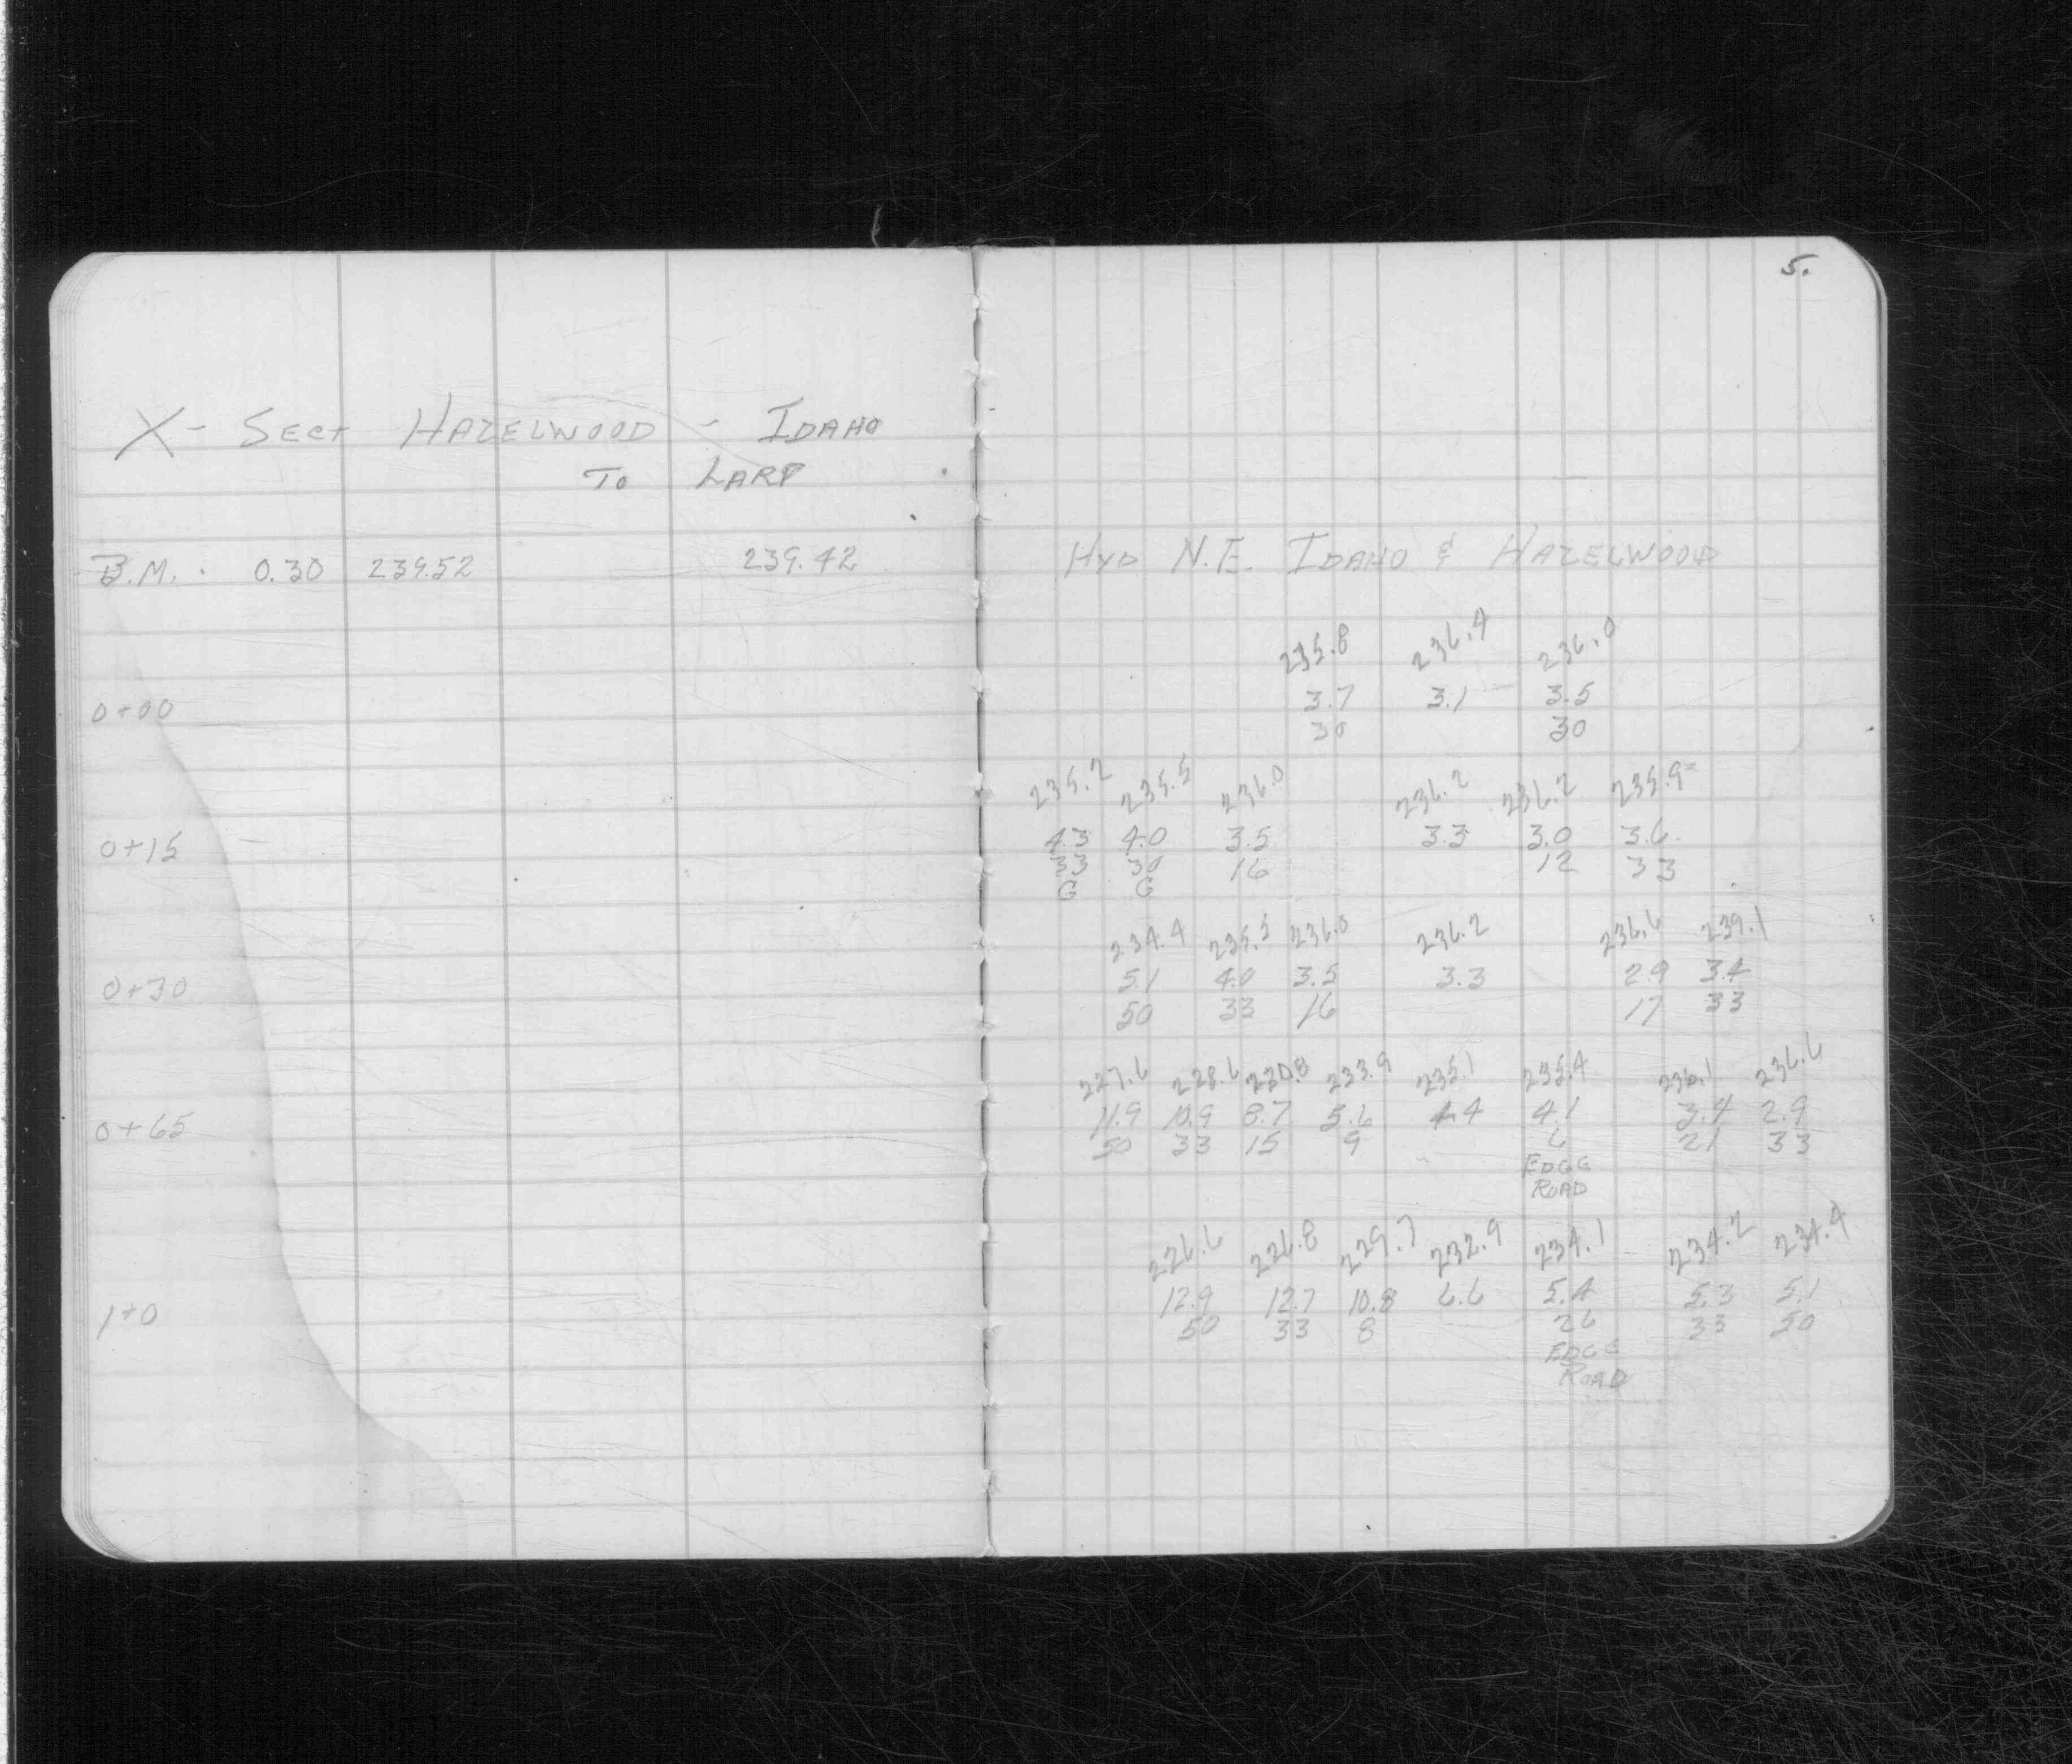 5.
X- Sect Hazelwood - Idaho
To Larp
B.M. 0.30 239.52 239.42 Hyd N.E. Idaho & Hazelwood
235.8 236.4 236.0
0+00 3.7 3.1 3.5
30 30
235.2 235.5 236.0 236.2 236.2 235.9
0+15 4.3 4.0 3.5 3.3 3.0 3.6
33 30 16 12 33
G G
234.4 235.5 236.0 236.2 236.6 239.1
0+30 5.1 4.0 3.5 3.3 2.9 3.4
50 33 16 17 33
227.6 228.6 230.8 233.9 235.1 235.4 236.1 236.6
0+65 11.9 10.9 8.7 5.6 4.4 4.1 3.4 2.9
50 33 15 9 6 21 33
Edge
Road
226.6 226.8 229.7 232.9 234.1 234.2 234.4
1+0 12.9 12.7 10.8 6.6 5.4 5.3 5.1
50 33 8 26 33 50
Edge
Road